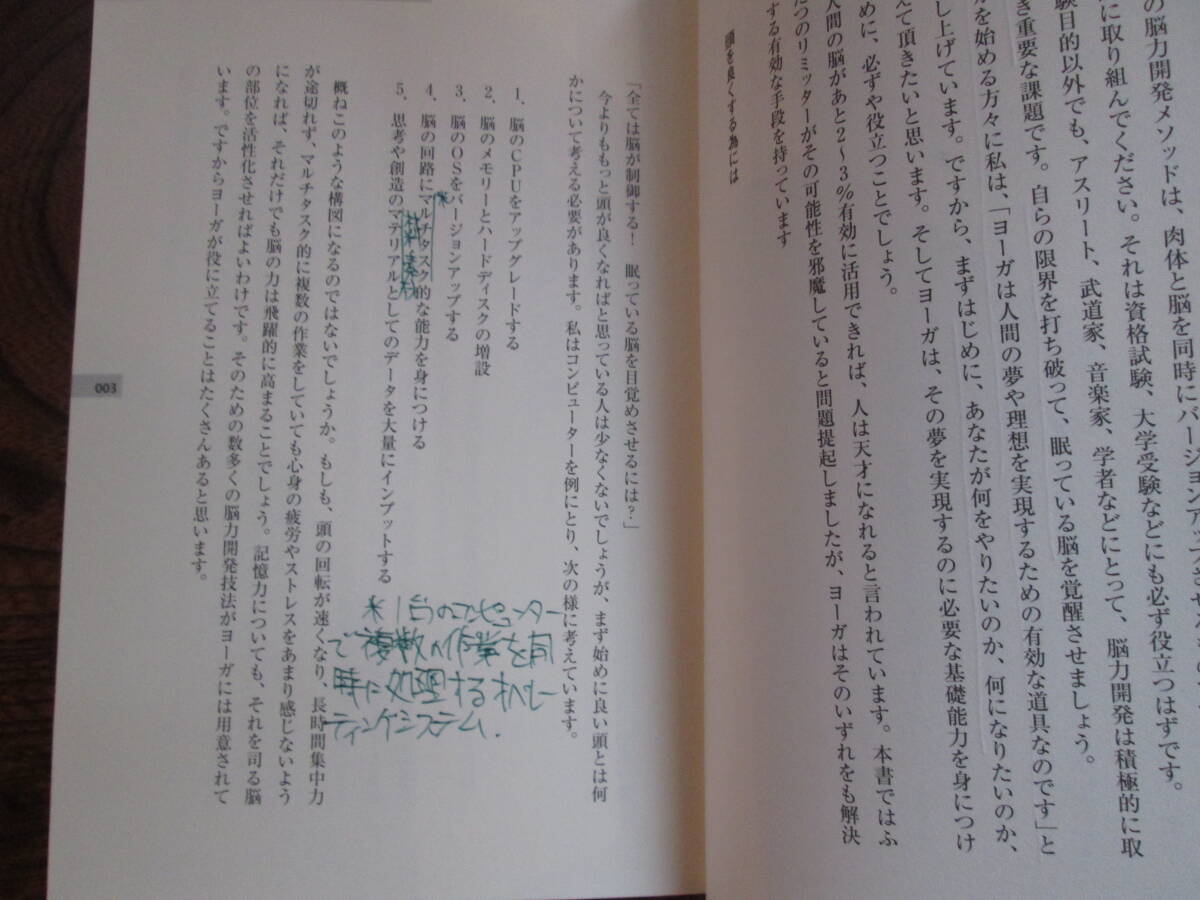 の脳力開発メソッドは、肉体と脳を同時にバージョンアップ
に取り組んでください。それは資格試験、大学受験などにも必ず役立つはずです。
験目的以外でも、アスリート、武道家、音楽家、学者などにとって、脳力開発は積極的に取
き重要な課題です。自らの限界を打ち破って、眠っている脳を覚醒させましょう。
を始める方々に私は、「ヨーガは人間の夢や理想を実現するための有効な道具なのです」と
し上げています。ですから、まずはじめに、あなたが何をやりたいのか、何になりたいのか、
えて頂きたいと思います。そしてヨーガは、その夢を実現するのに必要な基礎能力を身につけ
めに、必ずや役立つことでしょう。
人間の脳があと2〜3%有効に活用できれば、人は天才になれると言われています。本書ではふ
たつのリミッターがその可能性を邪魔していると問題提起しましたが、ヨーガはそのいずれをも解決
する有効な手段を持っています
頭を良くする為には
「全ては脳が制御する！　眠っている脳を目覚めさせるには？」
今よりももっと頭が良くなればと思っている人は少なくないでしょうが、まず始めに良い頭とは何
かについて考える必要があります。私はコンピューターを例にとり、次の様に考えています。
1、脳のCPUをアップグレードする
2、脳のメモリーとハードディスクの増設
3、脳のOSをバージョンアップする
4、脳の回路にマルチタスク的な能力を身につける
*
5、思考や創造のマテリアルとしてのデータを大量にインプットする
*1台のコンピューター
で複数の作業を同
時に処理するオペレー
ティングシステム.
概ねこのような構図になるのではないでしょうか。もしも、頭の回転が速くなり、長時間集中力
が途切れず、マルチタスク的に複数の作業をしていても心身の疲労やストレスをあまり感じないよう
になれば、それだけでも脳の力は飛躍的に高まることでしょう。記憶力についても、それを司る脳
の部位を活性化させればよいわけです。そのための数多くの脳力開発技法がヨーガには用意されて
います。ですからヨーガが役に立てることはたくさんあると思います。
003